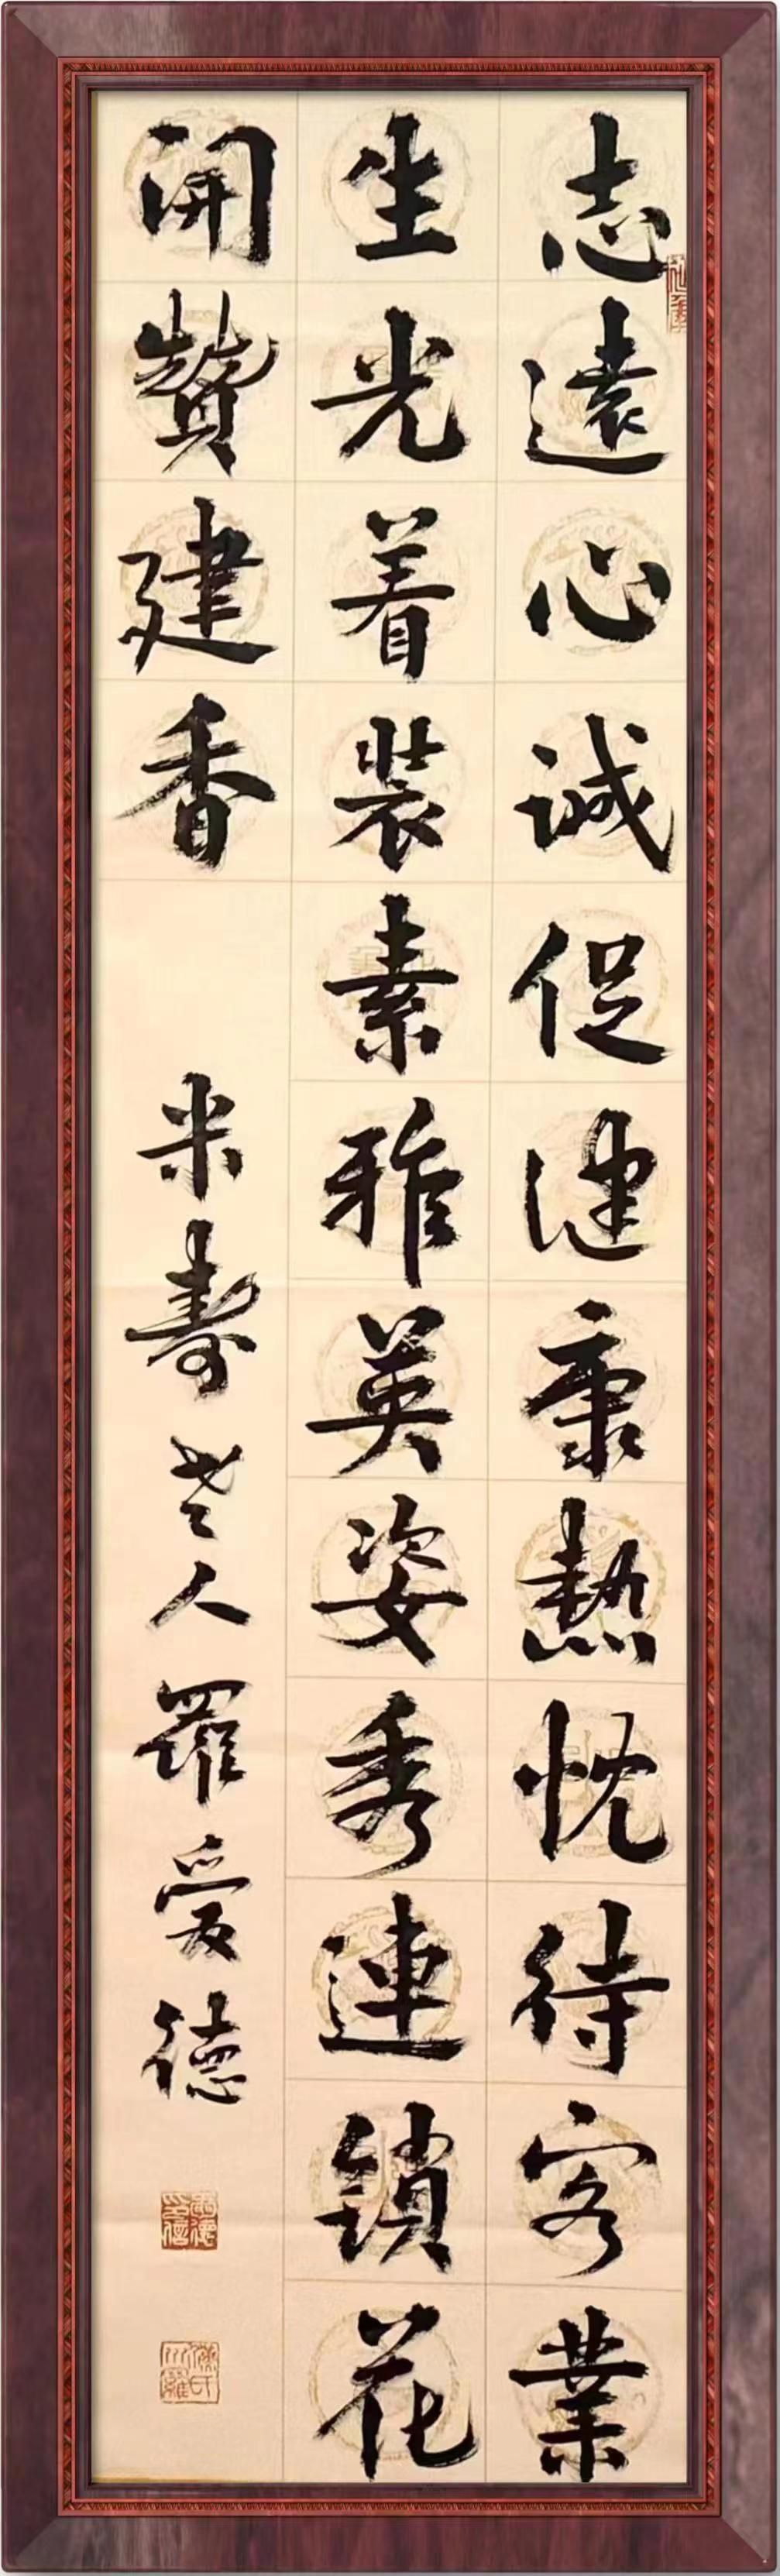 志遠心诚促健康熱忱待客業
生光着装素雅英姿秀連鎖花
開贊建香
米壽老人羅爱德